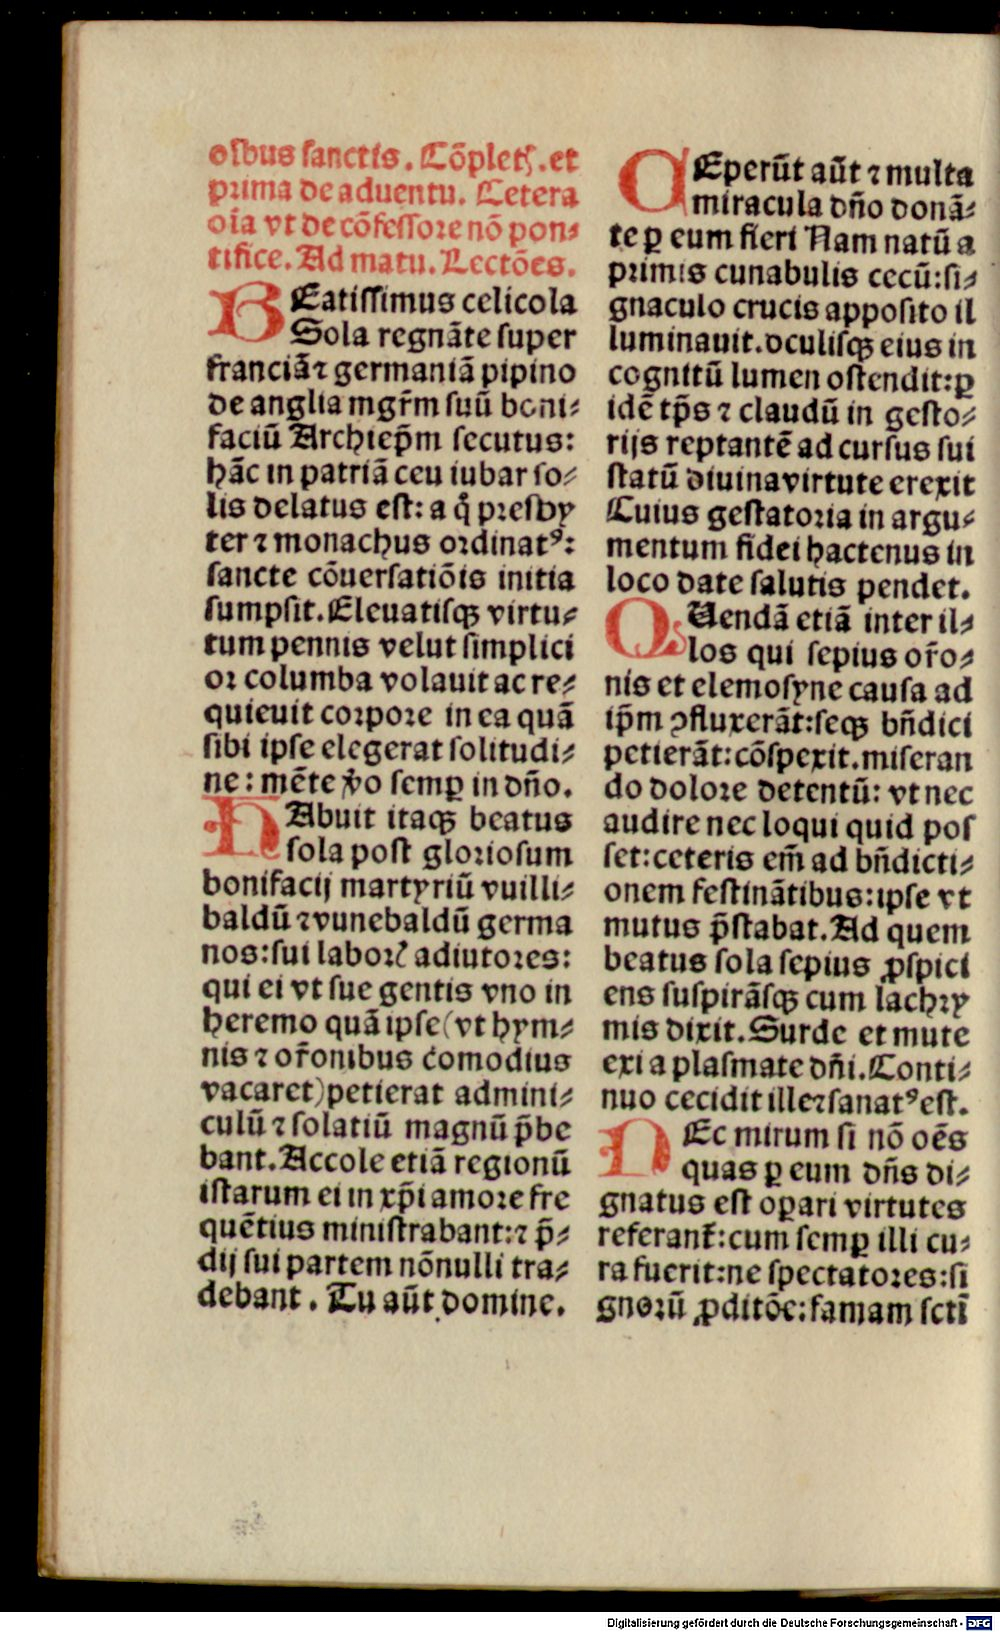 oĩbus sanctis. Cõpletꝫ. et
prima de aduentu. Cetera
oĩa vt de cõfessore nõ pon⸗
tifice. Ad matu. Lectões.
BEatissimus celicola
Sola regnãte super
franciã ⁊ germaniã pipino
de anglia mgr̃m suũ boni⸗
faciũ Archiep̃m secutus:
hãc in patriã ceu iubar so⸗
lis delatus est: a q̊ presby
ter ⁊ monachus ordinatꝰ:
sancte cõuersatiõis initia
sumpsit. Eleuatisqꝫ virtu⸗
tum pennis velut simplici
or columba volauit ac re⸗
quieuit corpore in ea quã
sibi ipse elegerat solitudi⸗
ne: mẽte ṽo semꝑ in dño.
HAbuit itaqꝫ beatus
sola post gloriosum
bonifacij martyriũ vuilli⸗
baldũ ⁊ vunebaldũ germa
nos: sui laborꝭ adiutores:
qui ei vt sue gentis vno in
heremo quã ipse (vt hym⸗
nis ⁊ or̃onibus comodius
vacaret) petierat admini⸗
culũ ⁊ solatiũ magnũ p̃be
bant. Accole etiã regionũ
istarum ei in xp̃i amore fre
quẽtius ministrabant: ⁊ p̃⸗
dij sui partem nõnulli tra⸗
debant. Tu aũt domine.
CEperũt aũt ⁊ multa
miracula dño donã⸗
te ꝑ eum fieri Nam natũ a
primis cunabulis cecũ: si⸗
gnaculo crucis apposito il
luminauit. oculisqꝫ eius in
cognitũ lumen ostendit: ꝑ
idẽ tp̃s ⁊ claudũ in gesto⸗
rijs reptantẽ ad cursus sui
statũ diuina virtute erexit
Cuius gestatoria in argu⸗
mentum fidei hactenus in
loco date salutis pendet.
QUendã etiã inter il⸗
los qui sepius or̃o⸗
nis et elemosyne causa ad
ip̃m ꝯfluxerãt: seqꝫ bñdici
petierãt: cõspexit. miseran
do dolore detentũ: vt nec
audire nec loqui quid pos
set: ceteris em̃ ad bñdicti⸗
onem festinãtibus: ipse vt
mutus p̃stabat. Ad quem
beatus sola sepius ꝓspici
ens suspirãsqꝫ cum lachry
mis dixit. Surde et mute
exi a plasmate dñi. Conti⸗
nuo cecidit ille ⁊ sanatꝰ est.
NEc mirum si nõ oẽs
quas ꝑ eum dñs di⸗
gnatus est oꝑari virtutes
referant̃: cum semꝑ illi cu⸗
ra fuerit: ne spectatores: si
gnorũ ꝓditõe: famam scti̅
Digitalisierung gefördert durch die Deutsche Forschungsgemeinschaft - DFG